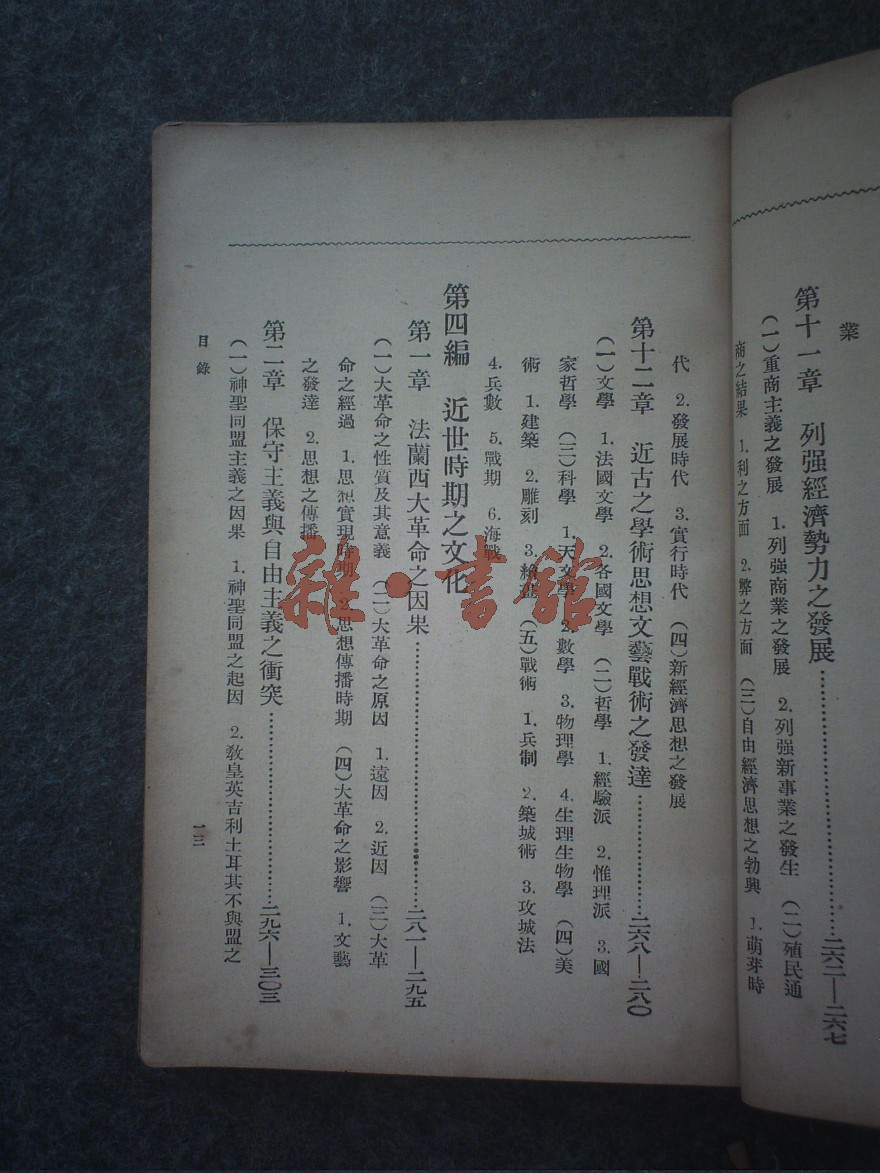 業
第十一章　列强經濟勢力之發展……二六二—二六七
（一）重商主義之發展　1.列强商業之發展　2.列强新事業之發生　（二）殖民通
商之結果　1.利之方面　2.弊之方面　（三）自由經濟思想之勃興　1.萌芽時
代　2.發展時代　3.實行時代　（四）新經濟思想之發展
第十二章　近古之學術思想文藝戰術之發達……二六八—二八〇
（一）文學　1.法國文學　2.各國文學　（二）哲學　1.經驗派　2.惟理派　3.國
家哲學　（三）科學　1.天文學　2.數學　3.物理學　4.生理生物學　（四）美
術　1.建築　2.雕刻　3.繪畫　（五）戰術　1.兵制　2.築城術　3.攻城法
4.兵數　5.戰期　6.海戰
第四編　近世時期之文化
第一章　法蘭西大革命之因果……二八一—二九五
（一）大革命之性質及其意義　（二）大革命之原因　1.遠因　2.近因　（三）大革
命之經過　1.思想實現時期　2.思想傳播時期　（四）大革命之影響　1.文藝
之發達　2.思想之傳播
第二章　保守主義與自由主義之衝突……二九六—三〇三
（一）神聖同盟主義之因果　1.神聖同盟之起因　2.教皇英吉利土耳其不與盟之
目錄
一三
雜·書館